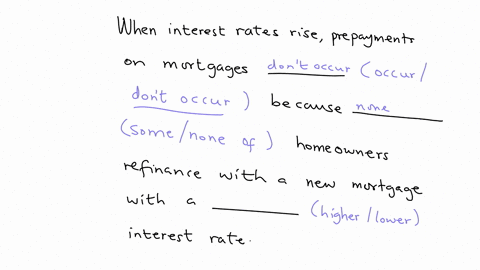 When interest rates rise, prepayments
on mortgages don't occur (occur/
don't occur) because none
(some/none of) homeowners
refinance with a new mortgage
with a ________ (higher/lower)
interest rate.